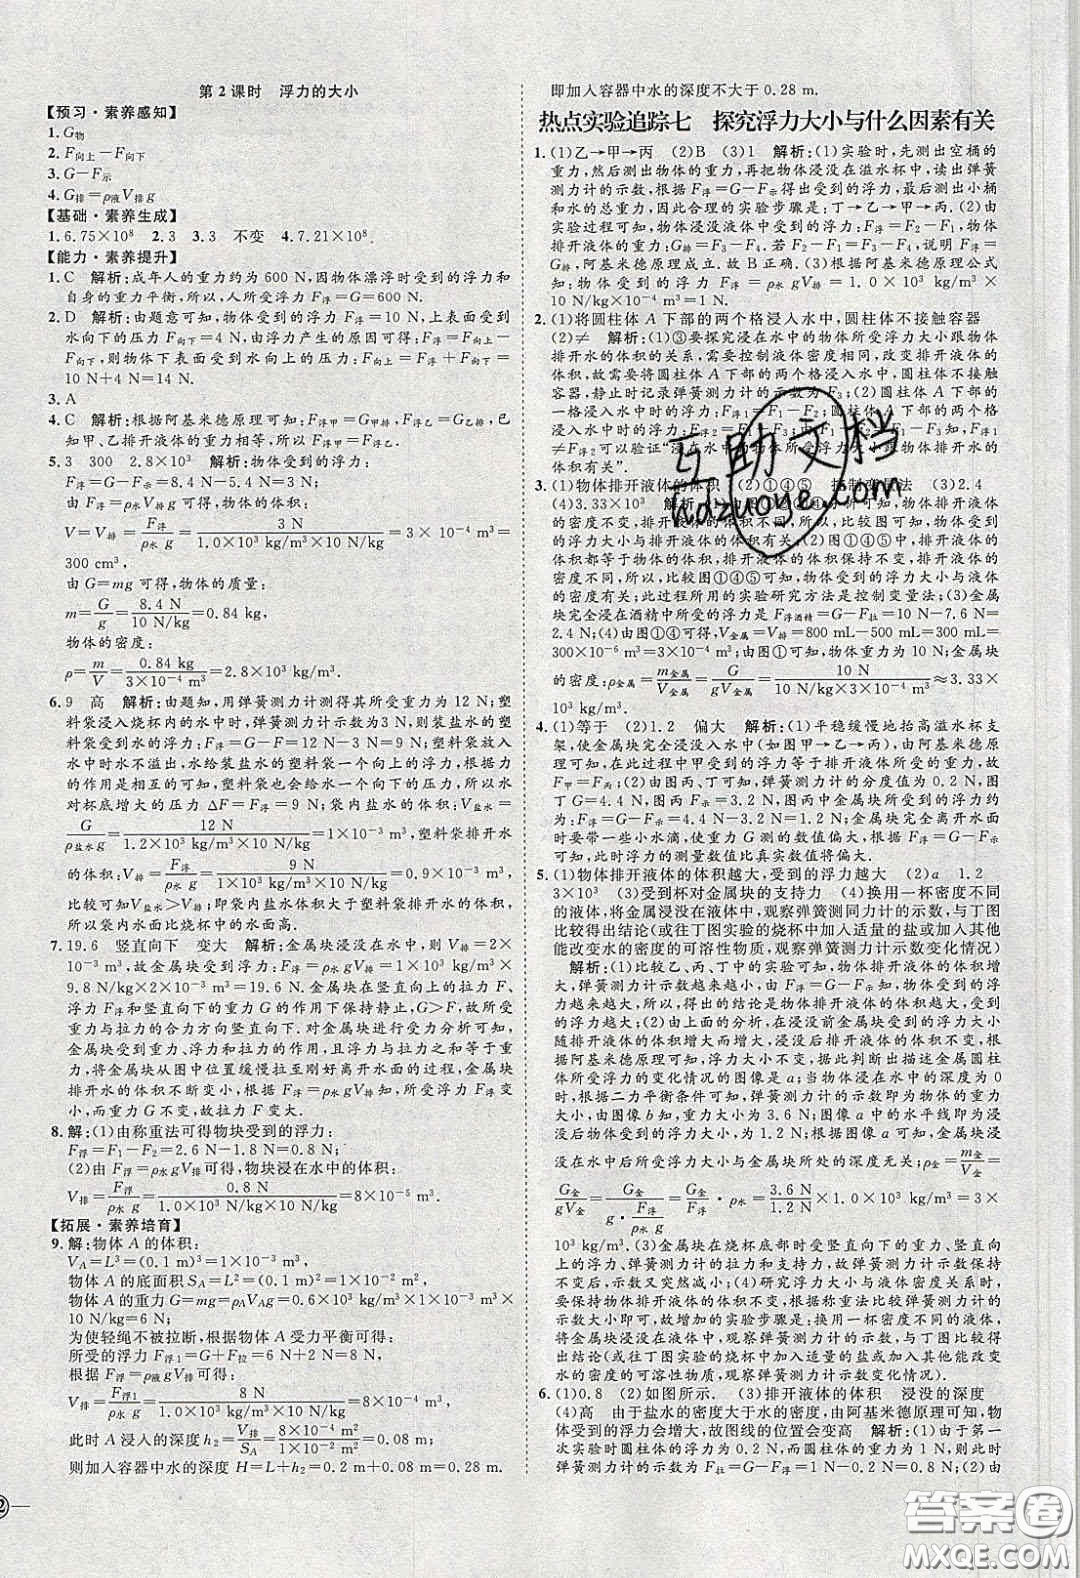 第2课时　浮力的大小
【预习·素养感知】
1.G物
2.F向上－F向下
3.G－F示
4.G排＝ρ液V排g
【基础·素养生成】
1.6.75×10⁸　2.3　3.3　不变　4.7.21×10⁸.
【能力·素养提升】
1.C　解析:成年人的重力约为600 N,因物体漂浮时受到的浮力和
自身的重力平衡,所以,人所受浮力F浮＝G＝600 N.
2.D　解析:由题意可知,物体受到的浮力F浮＝10 N,上表面受到
水向下的压力F向下＝4 N,由浮力产生的原因可得:F浮＝F向上－
F向下,则物体下表面受到水向上的压力:F向上＝F浮＋F向下＝
10 N＋4 N＝14 N.
3.A
4.C　解析:根据阿基米德原理可知,F浮甲＝G甲排,F浮乙＝G乙排,已
知甲、乙排开液体的重力相等,所以,F浮甲＝F浮乙.
5.3　300　2.8×10³　解析:物体受到的浮力:
F浮＝G－F浮＝8.4 N－5.4 N＝3 N,
由F浮＝ρ水gV排可得,物体的体积:
V＝V排＝F浮/ρ水g＝3 N/1.0×10³ kg/m³×10 N/kg＝3×10⁻⁴ m³＝
300 cm³,
由G＝mg可得,物体的质量:
m＝G/g＝8.4 N/10 N/kg＝0.84 kg,
物体的密度:
ρ＝m/V＝0.84 kg/3×10⁻⁴ m³＝2.8×10³ kg/m³.
6.9　高　解析:由题知,用弹簧测力计测得其所受重力为12 N;塑
料袋浸入烧杯内的水中时,弹簧测力计示数为3 N,则装盐水的塑
料袋受到水的浮力:F浮＝G－F＝12 N－3 N＝9 N;塑料袋放
入水中时水不动,水给装盐水的塑料袋一个向上的浮力,根据力
的作用是相互的可知,塑料袋也给水一个向下的压力,所以,水
对杯底增大的压力ΔF＝F浮＝9 N;袋内盐水的体积:V盐水＝
G/ρ盐水g＝12 N/1.2×10³ kg/m³×10 N/kg＝1×10⁻³ m³,塑料袋排开水
的体积:V排＝F浮/ρ水g＝9 N/1×10³ kg/m³×10 N/kg＝0.9×10⁻³ m³,
比较可知V盐水＞V排,即:袋内盐水体积大于塑料袋排开水的体积,
所以袋内水面比烧杯中的水面高.
7.19.6　竖直向下　变大　解析:金属块浸没在水中,V排＝V＝2×
10⁻³ m³,故金属块所受浮力F浮＝ρ水gV排＝1.0×10³ kg/m³×
9.8 N/kg×2×10⁻³ m³＝19.6 N.金属块在竖直向上的拉力F、
浮力F浮和竖直向下的重力G的作用下保持静止,G＞F,故所受
重力与拉力的合力方向竖直向下.对金属块进行受力分析可知,
金属块受到重力、浮力和拉力的作用,且浮力与拉力之和等于重
力,将金属块从图中位置缓慢拉至刚好离开水面的过程,金属块
排开水的体积不断变小,根据F浮＝ρ水gV排可知,所受浮力F浮变
小,而重力G不变,故拉力F变大.
8.解:(1)由称重法可得物块受到的浮力:
F浮＝F₁－F₂＝2.6 N－1.8 N＝0.8 N;
(2)由F浮＝ρ水gV排可得,物块浸在水中的体积:
V排＝F浮/ρ水g＝0.8 N/1.0×10³ kg/m³×10 N/kg＝8×10⁻⁵ m³.
【拓展·素养培育】
9.解:物体A的体积:
V_A＝L³＝(0.1 m)³＝1×10⁻³ m³,
物体A的底面积S_A＝L²＝(0.1 m)²＝1×10⁻² m²,
物体A的重力G＝mg＝ρ_AV_Ag＝0.6×10³ kg/m³×1×10⁻³ m³
×10 N/kg＝6 N;
为使轻绳不被拉断,根据物体A受力平衡可得:
所受的浮力F浮1＝G＋F拉＝6 N＋2 N＝8 N;
根据F浮＝ρ液gV排可得:
V排＝F浮1/ρ水g＝8 N/1.0×10³ kg/m³×10 N/kg＝8×10⁻⁴ m³,
此时A浸入的深度h₂＝V排/S_A＝8×10⁻⁴ m³/1×10⁻² m²＝0.08 m,
则加入容器中水的深度H＝L＋h₂＝0.2 m＋0.08 m＝0.28 m,
即加入容器中水的深度不大于0.28 m.
热点实验追踪七　探究浮力大小与什么因素有关
1.(1)乙→甲→丙　(2)B　(3)1　解析:(1)实验时,先测出空桶的
重力,然后测出物体的重力,再将物体浸没在溢水杯中,读出弹簧
测力计的示数,根据F浮＝G－F示得出受到的浮力,最后测出小桶
和水的总重力,因此合理的实验步骤是:丁→乙→甲→丙.(2)由
实验过程可知,物体浸没水中时受到的浮力:F浮＝F₁－F₂,物体
排开液体的重力:G排＝F₃－F₄.若F₁－F₂＝F₃－F₄,说明F浮
＝G排,阿基米德原理成立.故B正确.(3)由阿基米德原理可知,
物体受到的浮力:F浮＝ρ水gV排＝1.0×10³ kg/m³×
10 N/kg×10⁻⁴ m³＝1 N.
2.(1)将圆柱体A下部的两个格浸入水中,圆柱体不接触容器
(2)≠　解析:(1)③要探究浸在水中的物体所受浮力大小跟物体
排开水的体积的关系,需要控制液体密度相同,改变排开液体的体
积,故需要将圆柱体A下部的两个格浸入水中,圆柱体不接触容
器,静止时记录弹簧测力计的示数为F₃;(2)圆柱体A下部的
一格浸入水中时的浮力:F浮1＝F₁－F₂;圆柱体A下部的两个格
浸入水中时的浮力:F浮2＝F₁－F₃,
≠F浮2可以验证“浸在水中的物体所受浮力大小跟物体排开水的
体积有关”.
3.(1)物体排开液体的体积　(2)①④⑤　控制变量法　(3)2.4
(4)3.33×10³　
的密度不变,排开液体的体积不同,所以,比较图可知,物体受到
的浮力大小与物体排开液体的体积有关;(2)
体积都等于物体的体积,排开液体的体积保持不变,排开液体的
密度不同,所以,比较图①④⑤可知,物体受到的浮力与液体的
密度有关;此过程所用的实验研究方法是控制变量法;(3)金属
块完全浸没在酒精中所受的浮力F浮酒精＝G－F拉＝10 N－7.6 N＝
2.4 N;(4)由图①④可得,V金属＝V排＝800 mL－500 mL＝
300×10⁻⁶ m³＝3×10⁻⁴ m³.物体重力为10 N,金属块
的密度:ρ金属＝m金属/V金属＝G/gV金属＝10 N/10 N/kg×3×10⁻⁴ m³≈3.33×
10³ kg/m³.
4.(1)等于　(2)1.2　偏大　解析:(1)平稳缓慢地抬高溢水杯支
架,使金属块完全浸没入水中(如图甲→乙→丙),由阿基米德原
理可知,在此过程中甲受到的浮力等于溢出水所受的重力,故
F甲＝F乙;(2)由图丙、丁可知,弹簧测力计的分度值为0.2 N,图
丁G＝4.4 N,图丙F示＝3.2 N,图丙中金属块所受的浮力约
为F浮＝G－F示＝4.4 N－3.2 N＝1.2 N.金属块完全离开水面
时要带一些小水滴,使重力G测的数值偏大,根据F浮＝G－F示
知,因此时浮力的测量数值比真实数值将偏大.
5.(1)物体排开液体的体积越大,受到的浮力越大　(2)a　1.2
3×10³　(3)受到杯对金属块的支持力　(4)换用一杯密度不同
的液体,将金属块浸没在液体中,观察弹簧测力计的示数,与丁图
比较得出结论(或往丁图实验的烧杯中加入适量的盐或加入其他
能改变水的密度的可溶性物质,观察弹簧测力计示数变化情况)
解析:(1)比较乙、丙、丁中的实验可知,物体排开液体的体积增
大,弹簧测力计示数越来越小,根据称重法可知,物体受到的浮
力越来越大,所以,得出的结论是物体排开液体的体积越大,受到
的浮力越大;(2)由上面的分析,在浸没前金属块受到的浮力大小
随排开液体的体积增大而增大,浸没后排开液体的体积不变,根
据阿基米德原理可知,浮力大小不变,据此判断出描述金属圆柱
体所受浮力的变化情况的图像是a;当物体浸入水中的深度为0
时,根据二力平衡条件可知,弹簧测力计的示数即为物体的重力
大小,由图像b知,重力大小为3.6 N;图像a中的水平线即为浸
没时受到的浮力大小,为1.2 N;由图像a可知,金属圆柱体浸没
在水中所受浮力大小与金属块所处的深度无关;ρ金＝m金/V金＝
G金/gV金＝G金/g·F浮/ρ水g＝G金/F浮·ρ水＝3.6 N/1.2 N×1.0×10³ kg/m³＝3×
10³ kg/m³.(3)金属块在烧杯底部时受竖直向下的重力、竖直向上
的浮力、弹簧测力计的拉力和支持力,所以,弹簧测力计示数保持不
变后,示数又突然减小;(4)研究浮力大小与液体密度关系时,
要改变液体的密度而控制排开液体的体积不变,根据称重法比较弹簧测力计
的示数大小即可,故增加的实验步骤为:换用一杯密度不同的液体,
将金属块浸没在液体中,观察弹簧测力计的示数,与丁图比较得
出结论(或往丁图实验的烧杯中加入适量的盐或加入其他能改变
水的密度的可溶性物质,观察弹簧测力计示数变化情况).
6.(1)0.8　(2)如图所示.　(3)排开液体的体积　浸没的深度
(4)高　由于盐水的密度大于水的密度,由阿基米德原理可知,
物体受到的浮力会增大,故图线的位置会变高　解析:(1)由于第一
次实验时圆柱体的浮力为0.2 N,而浮力为0.2 N＝
互助文档
hdzuoye.com
答案圈
MXQE.COM